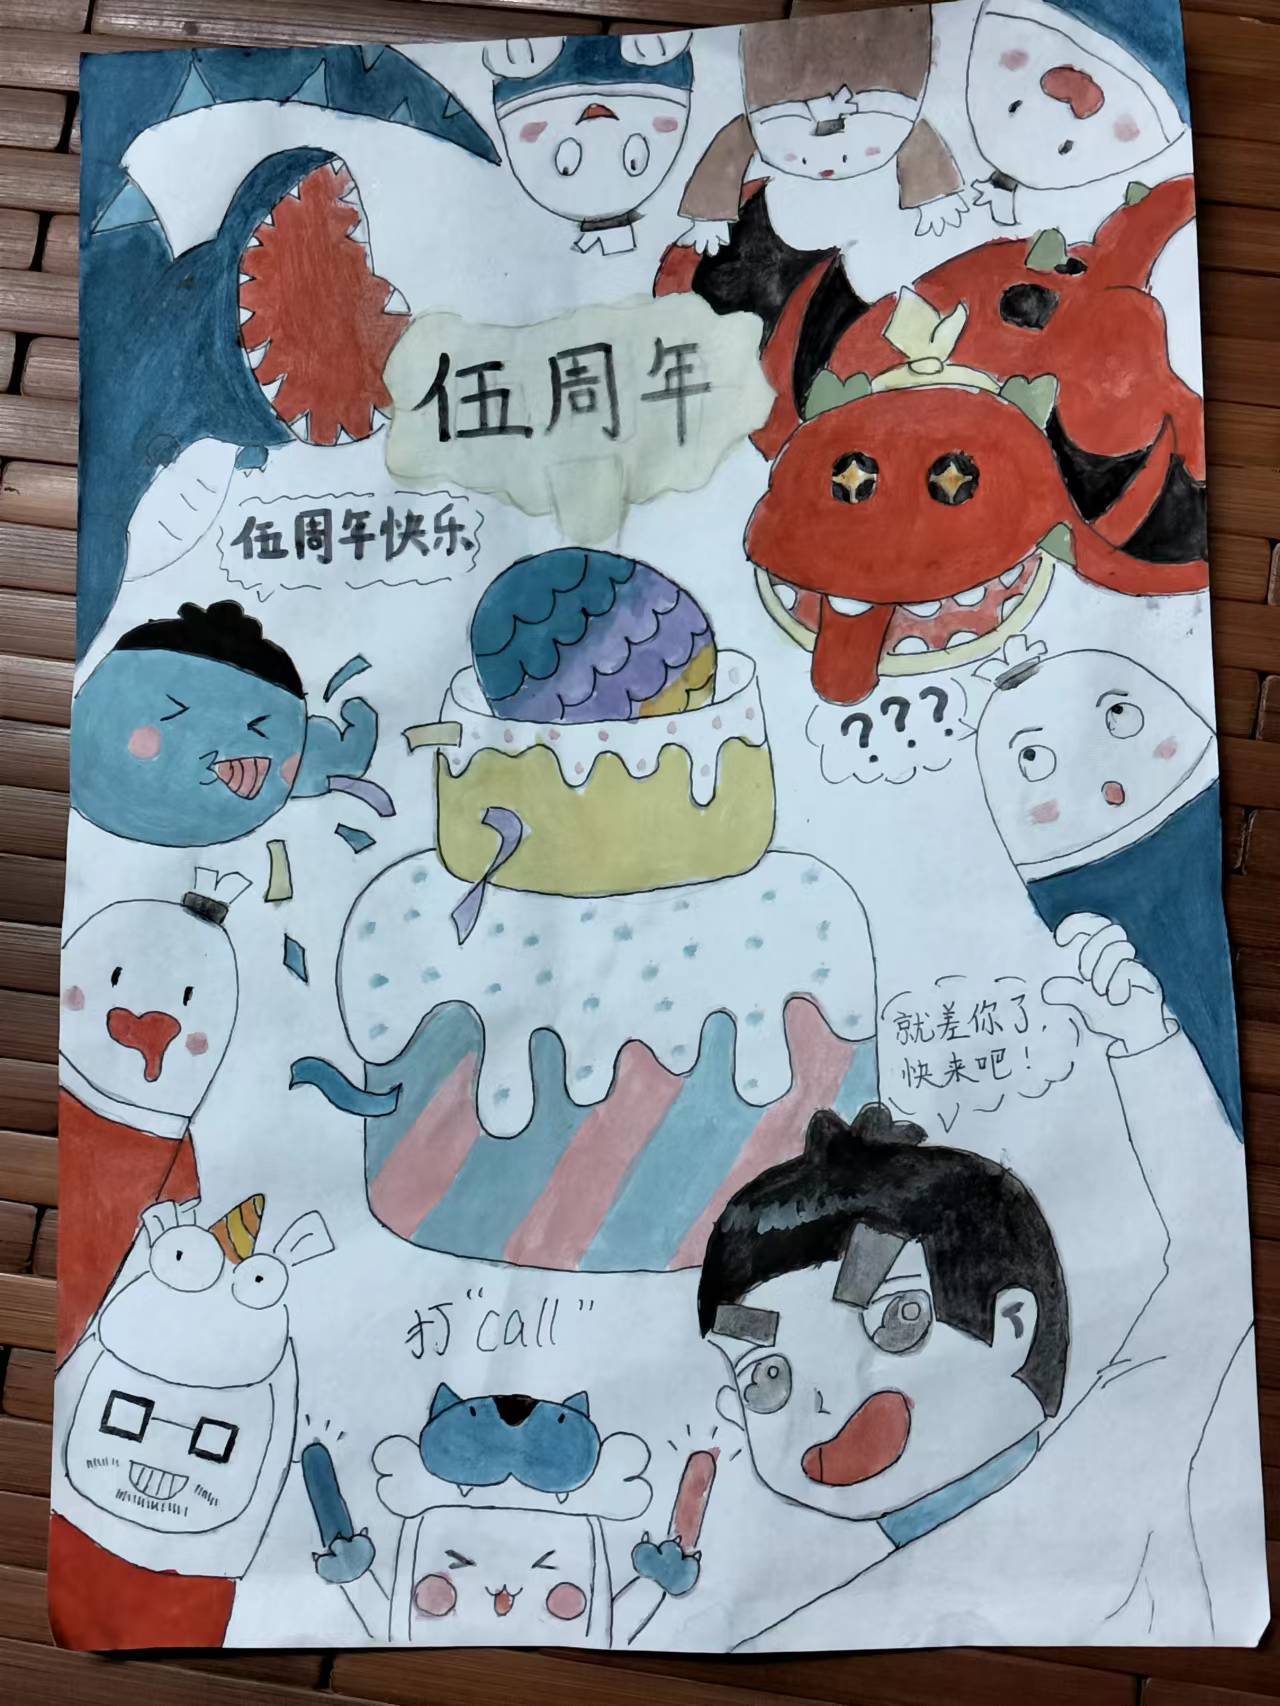 伍周年
伍周年快乐
???
就差你了,
快来吧!
打“call”